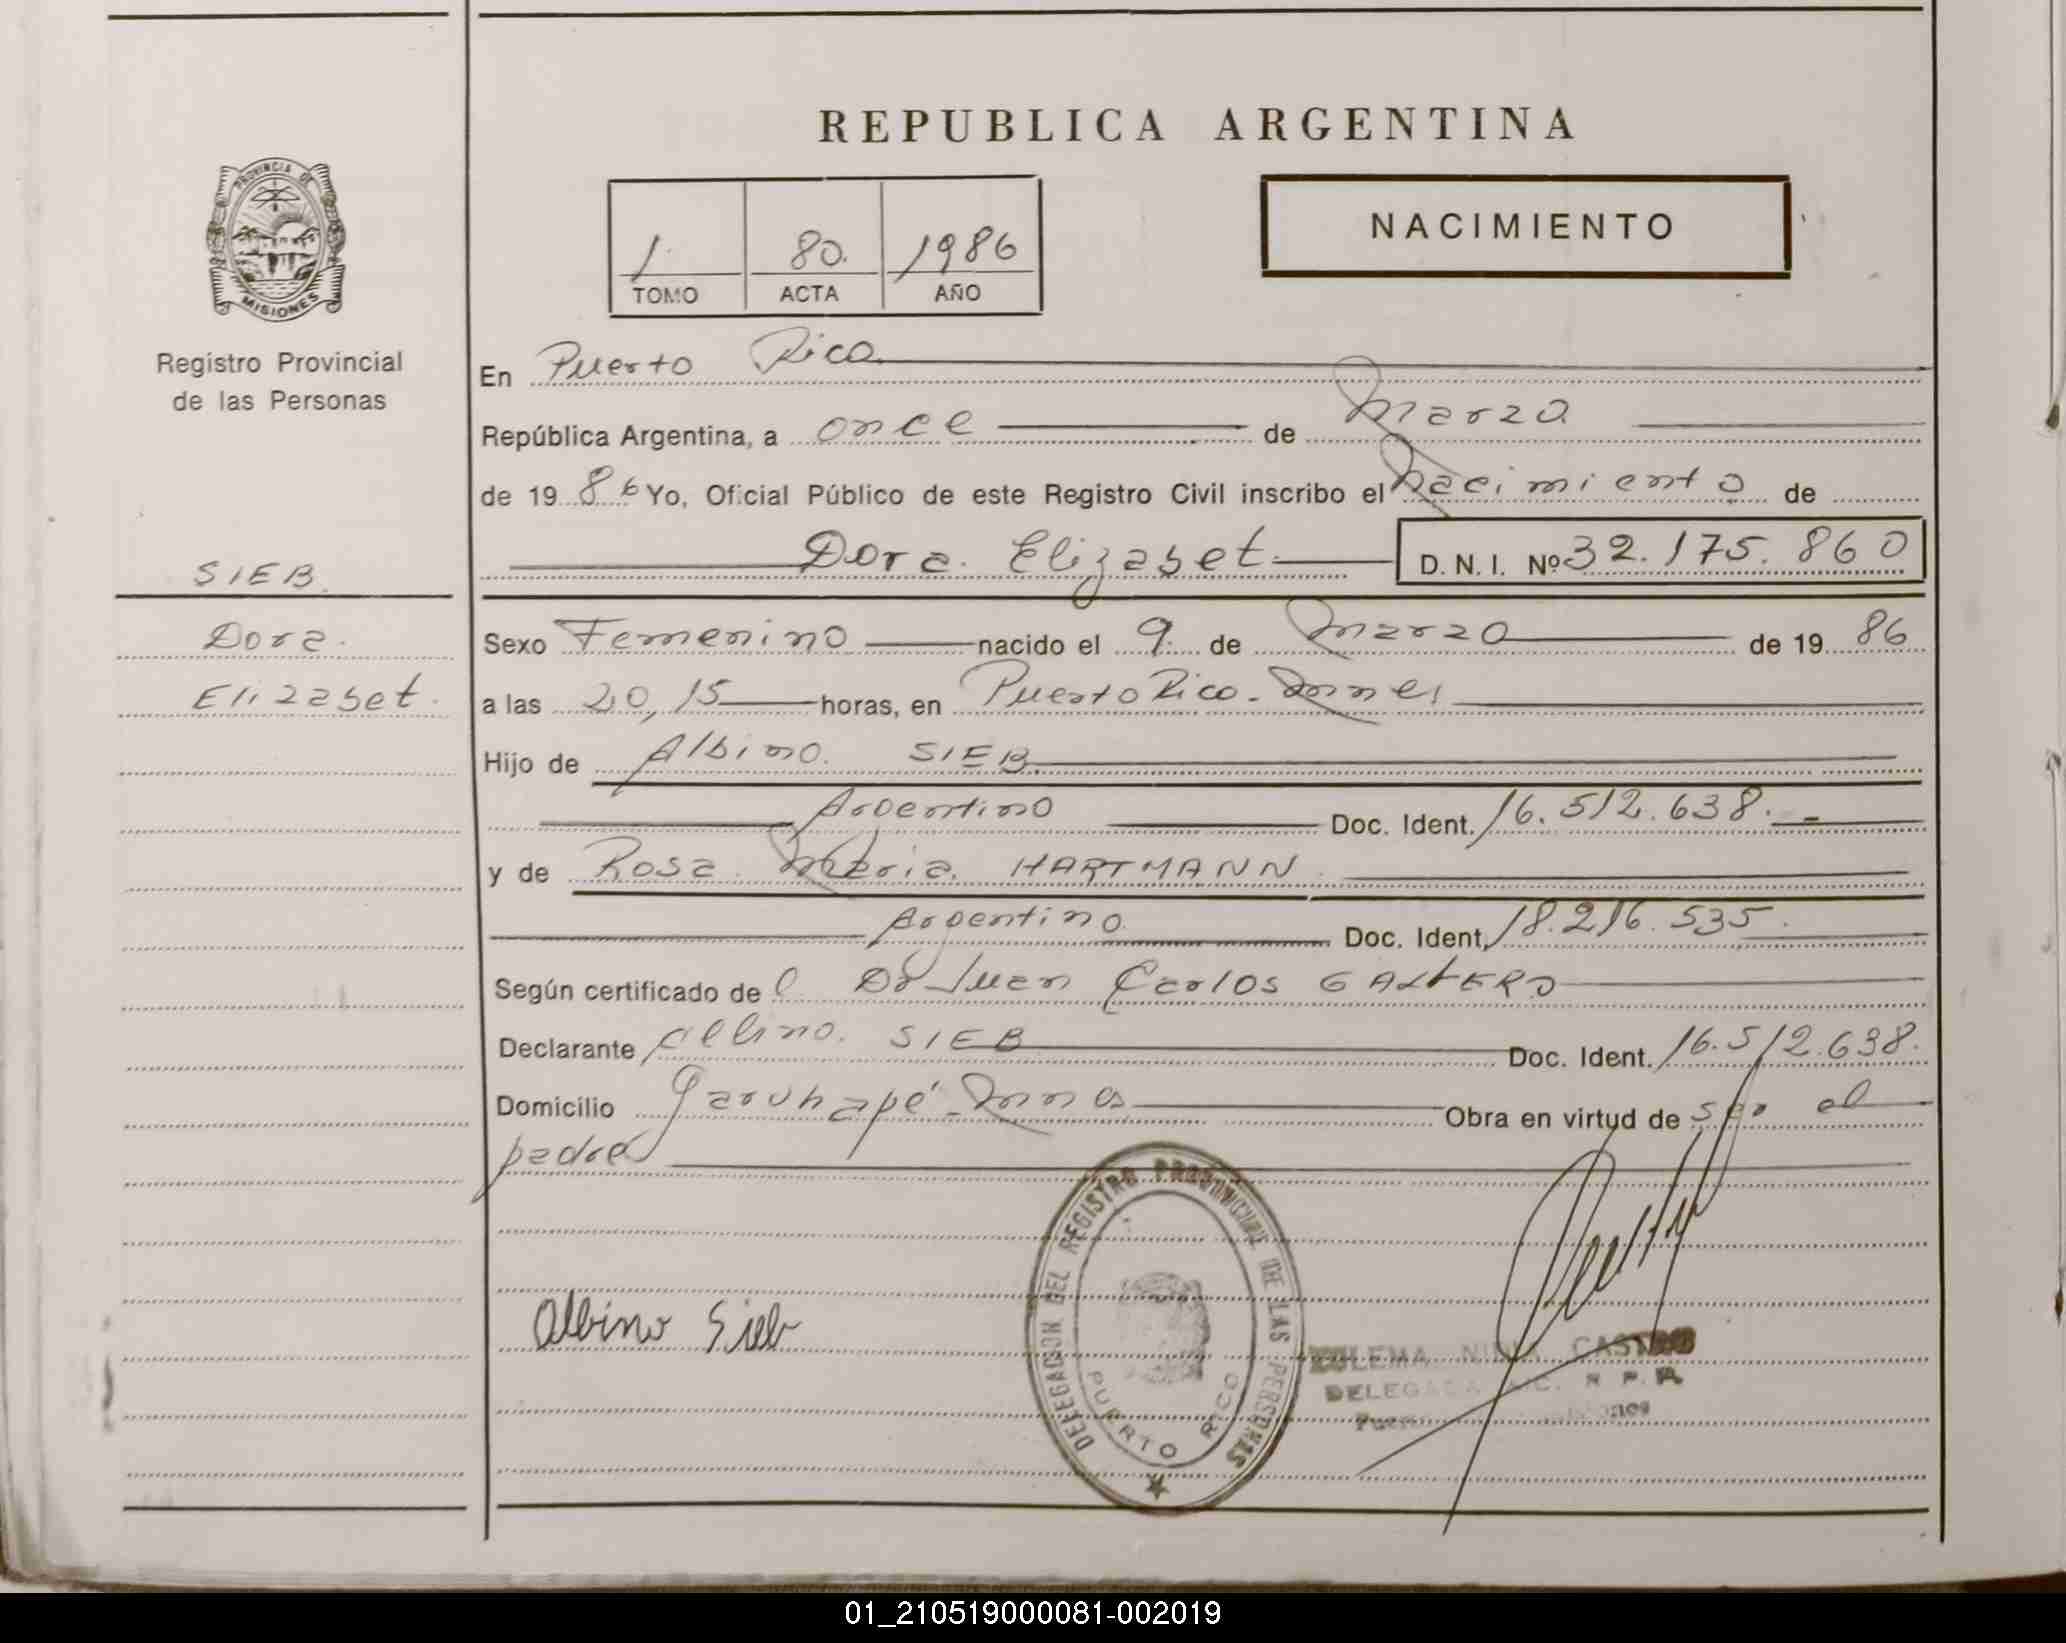 REPUBLICA ARGENTINA
PROVINCIA DE
MISIONES
Registro Provincial
de las Personas
1. 80. 1986
TOMO ACTA AÑO
NACIMIENTO
En Puerto Rico
República Argentina, a once de Marzo
de 1986 Yo, Oficial Público de este Registro Civil inscribo el Nacimiento de
Dora Elizabet D. N. I. Nº 32.175.860
SIEB
Dora
Elizabet.
Sexo Femenino nacido el 9 de Marzo de 1986
a las 20,15 horas, en Puerto Rico - Mnes
Hijo de Albino SIEB
Argentino Doc. Ident. 16.512.638.-
y de Rosa Maria HARTMANN
Argentino Doc. Ident. 18.216.535.
Según certificado del Dr Juan Carlos
Declarante Albino SIEB Doc. Ident. 16.512.638.
Domicilio Garuhapé - Mnes Obra en virtud de ser el
padre
Albino Sieb
DELEGACION DEL REGISTRO PROVINCIAL DE LAS PERSONAS
PUERTO RICO
CASTRO
01_210519000081-002019